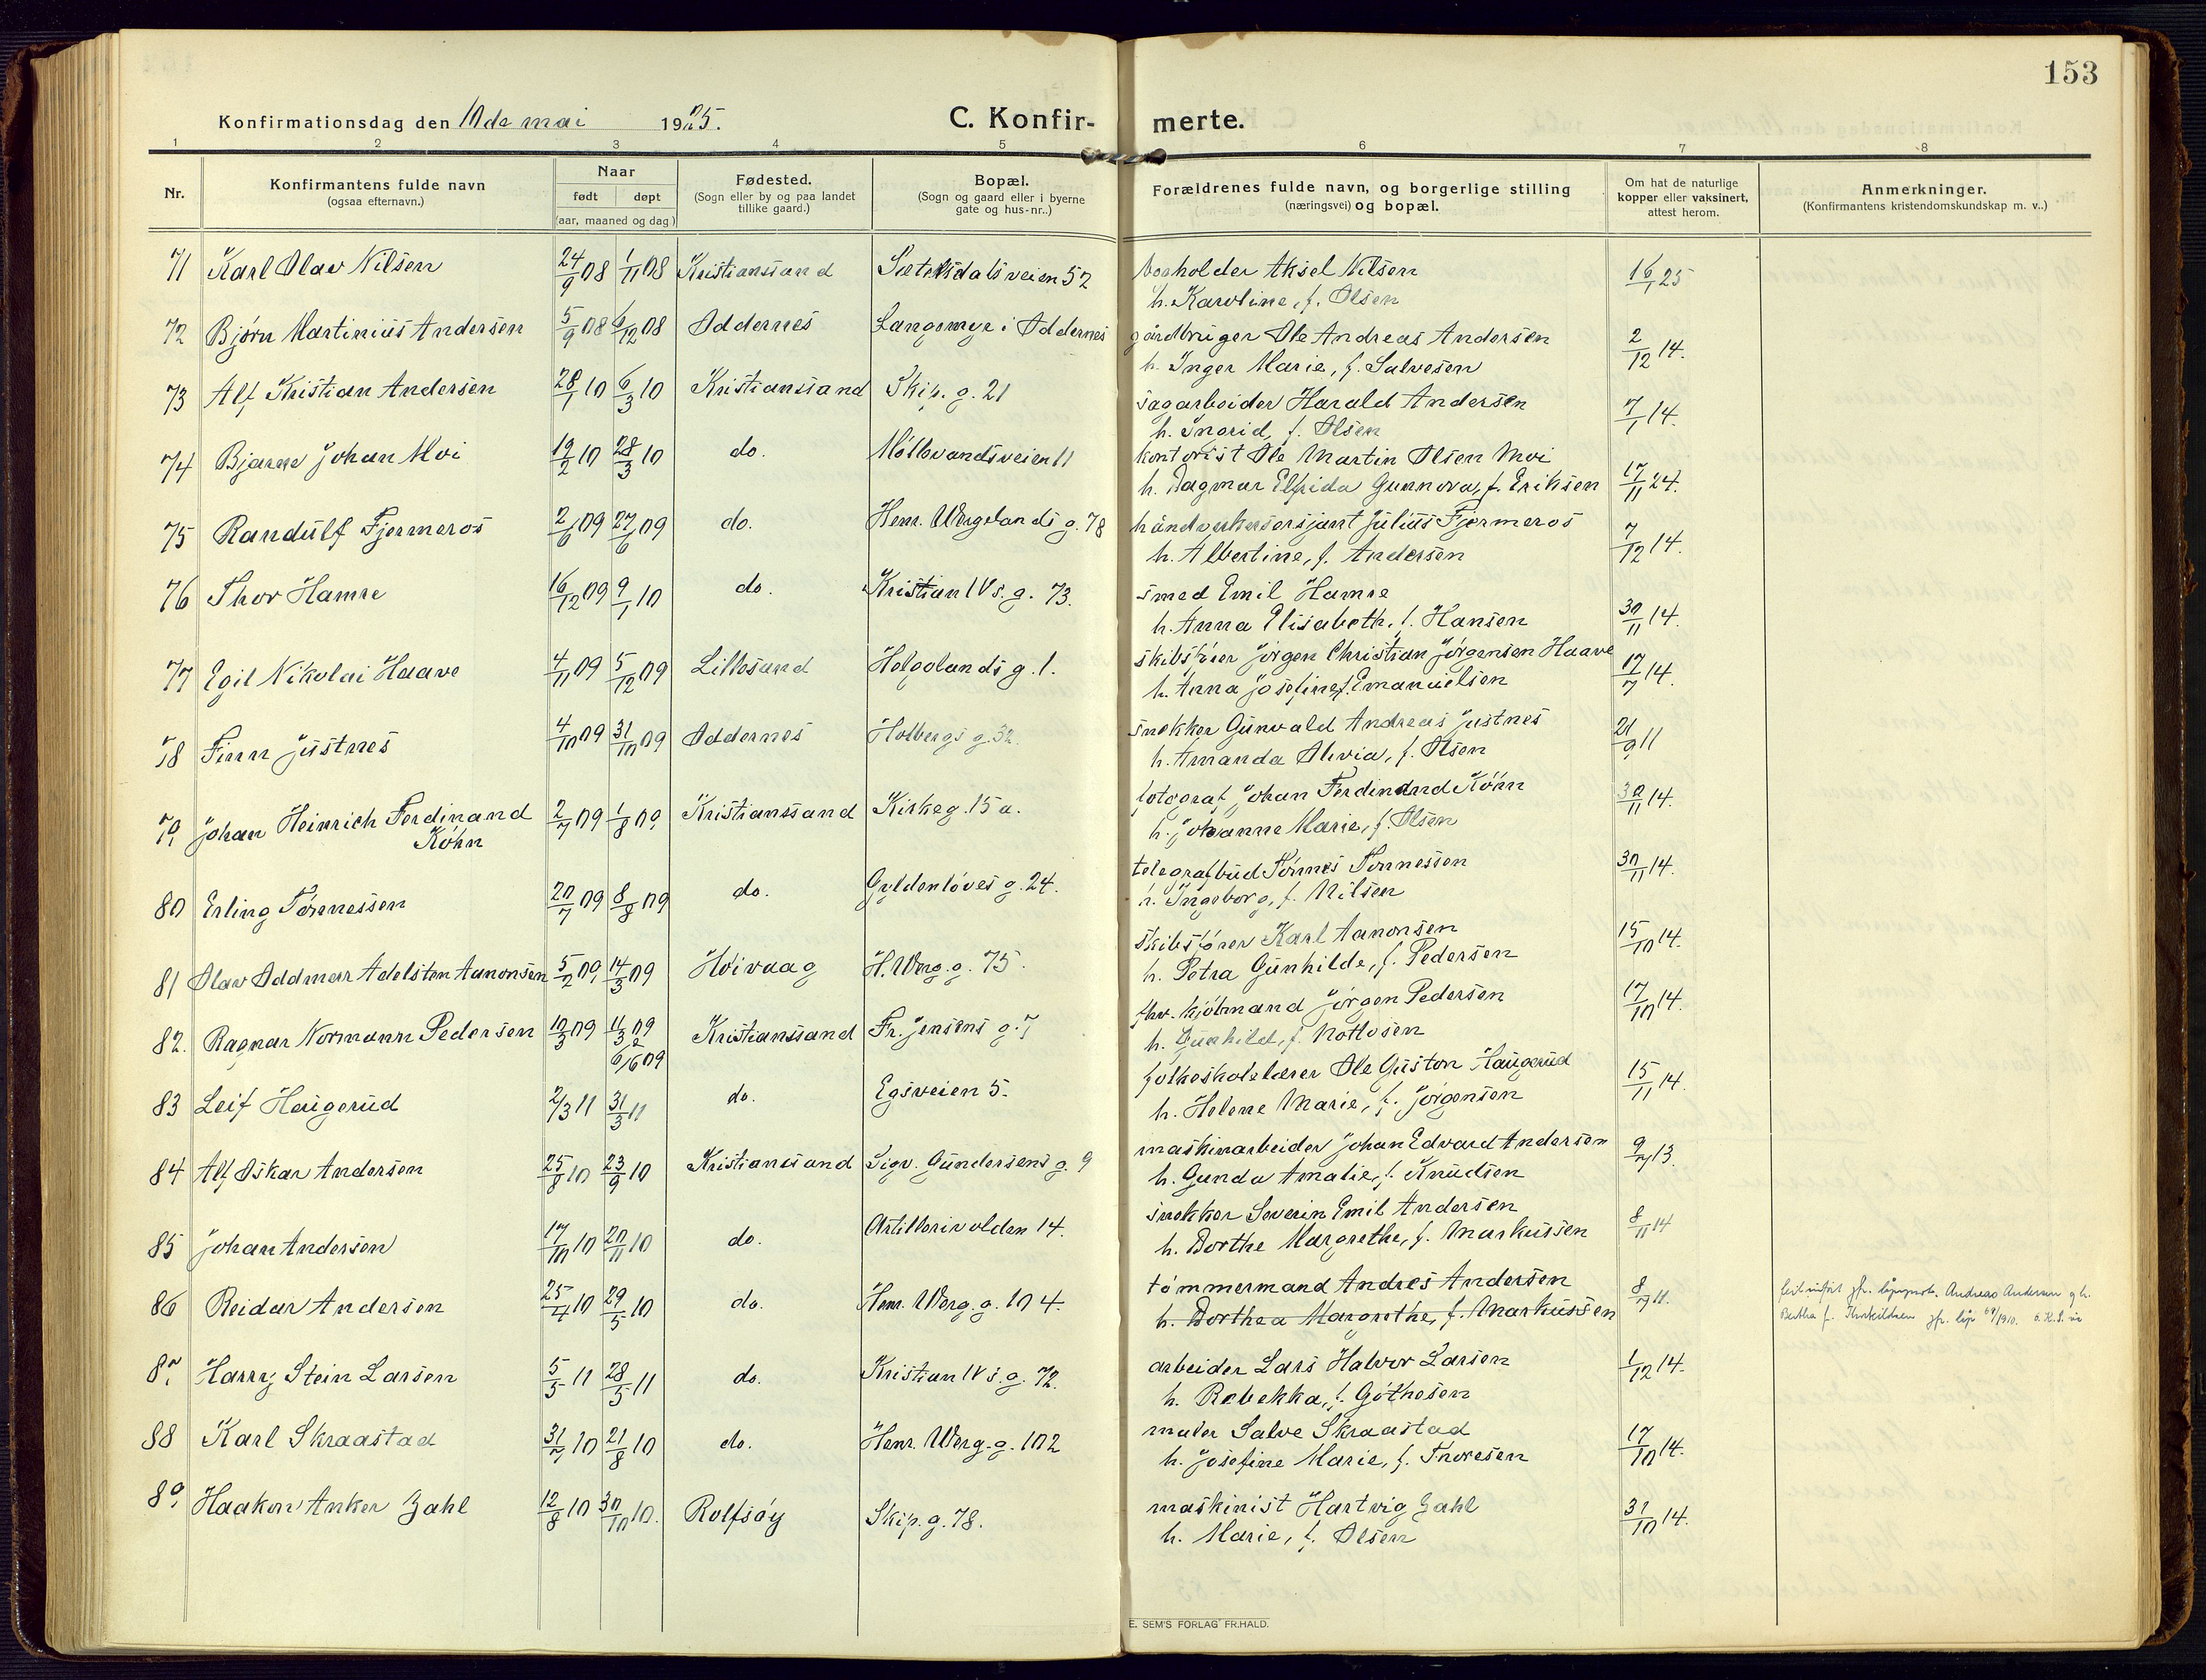 153
Konfirmationsdag den 10de mai 1925.
C. Konfir- merte.
1 2 3 4 5 6 7 8
Nr.
Konfirmantens fulde navn
(ogsaa efternavn.)
Naar
født døpt
(aar, maaned og dag)
Fødested.
(Sogn eller by og paa landet
tillike gaard.)
Bopæl.
(Sogn og gaard eller i byerne
gate og hus-nr..)
Forældrenes fulde navn, og borgerlige stilling
(næringsvei) og bopæl.
Om hat de naturlige
kopper eller vaksinert,
attest herom.
Anmerkninger.
(Konfirmantens kristendomskundskap m. v..)
71 Karl Olav Nilsen 24/9 08 1/11 08 Kristianssand Sætersdalsveien 52 Aksel Nilsen 16/1 25
h. Karoline, f. Olsen
72 Bjørn Martinius Andersen 5/9 08 6/12 08 Oddernes Langemyr i Oddernes gårdbruger Ole Andreas Andersen 2/12 14.
h. Inger Marie, f. Salvesen
73 Alf Kristian Andersen 28/1 10 6/3 10 Kristianssand Skip. g. 21 sagarbeider Harald Andersen 7/1 14.
h. Ingrid, f. Olsen
74 Bjarne Johan Moi 19/2 10 28/3 10 do. Møllevandsveien 11 kontorist Ole Martin Olsen Moi 17/11 24.
h. Dagmar Elfrida Gunnova, f. Eriksen
75 Randulf Fjermeros 2/6 09 27/6 09 do. Henr. Wergelands g. 78 håndverkersersjant Julius Fjermeros 7/12 14.
h. Albertine, f. Andersen
76 Thor Hamre 16/12 09 9/1 10 do. Kristian IVs. g. 73. smed Emil Hamre 30/11 14.
h. Anna Elisabeth, f. Hansen
77 Egil Nikolai Haave 4/11 09 5/12 09 Lillesand Helgolands g. 1. skibsfører Jørgen Christian Jørgensen Haave 17/7 14.
h. Anna Josefine f. Emanuelsen
78 Finn Justnes 4/10 09 31/10 09 Oddernes Holbergs g. 32. snekker Gunvald Andreas Justnes 21/9 11
h. Amanda Olivia, f. Olsen
79 Johan Heinrich Ferdinand 2/7 09 1/8 09 Kristianssand Kirkeg. 15 a. fotograf Johan Ferdinand Køhn 30/11 14.
Køhn h. Johanne Marie, f. Olsen
80 Erling Tønnessen 20/7 09 8/8 09 do. Gyldenløves g. 24. telegrafbud Tønnes Tønnessen 30/11 14.
h. Ingeborg, f. Nilsen
81 Olav Oddmar Adelsten Aanonsen 5/2 09 14/3 09 Høivaag H. Werg. g. 75. skibsfører Karl Aanonsen 15/10 14.
h. Petra Gunhilde, f. Pedersen
82. Ragnar Normann Pedersen 10/3 09 11/3 09 Kristianssand Fr. Jensens g. 7 fhv. kjøbmand Jørgen Pedersen 17/10 14.
6/6 09 h. Gunhild, f. Nottosen
83 Leif Haugerud 2/3 11 31/3 11 do. Egsveien 5. folkeskolelærer Ole Guston Haugerud 15/11 14.
h. Helene Marie, f. Jørgensen
84 Alf Oskar Andersen 25/8 10 23/9 10 Kristianssand Sigv. Gundersens g. 9 maskinarbeider Johan Edvard Andersen 9/7 13.
h. Gunda Amalie, f. Knudsen
85 Johan Andersen 17/10 10 20/11 10 do. Artillerivolden 14. snekker Severin Emil Andersen 8/11 14
h. Dorthe Margrethe, f. Markussen
86 Reidar Andersen 25/4 10 29/5 10 do. Henr. Werg. g. 104. tømmermand Andres Andersen 8/7 11.
h. Dorthea Margrethe, f. Markussen
Feilinført jfr. Andreas Andersen g h.
Bertha f. jfr. 1910.
87 Harry Stein Larsen 5/5 11 28/5 11 do. Kristian IVs. g. 72. arbeider Lars Halvor Larsen 1/12 14.
h. Rebekka, f. Gøthesen
88 Karl Skraastad 31/7 10 21/8 10 do. Henr. Werg. g. 102 maler Salve Skraastad 17/10 14.
h. Josefine Marie, f. Thoresen
89 Haakon Anker Zahl 12/8 10 30/10 10. Rolfsøy Skip. g. 78. maskinist Hartvig Zahl 31/10 14.
h. Marie, f. Olsen
E. SEM'S FORLAG FR.HALD.